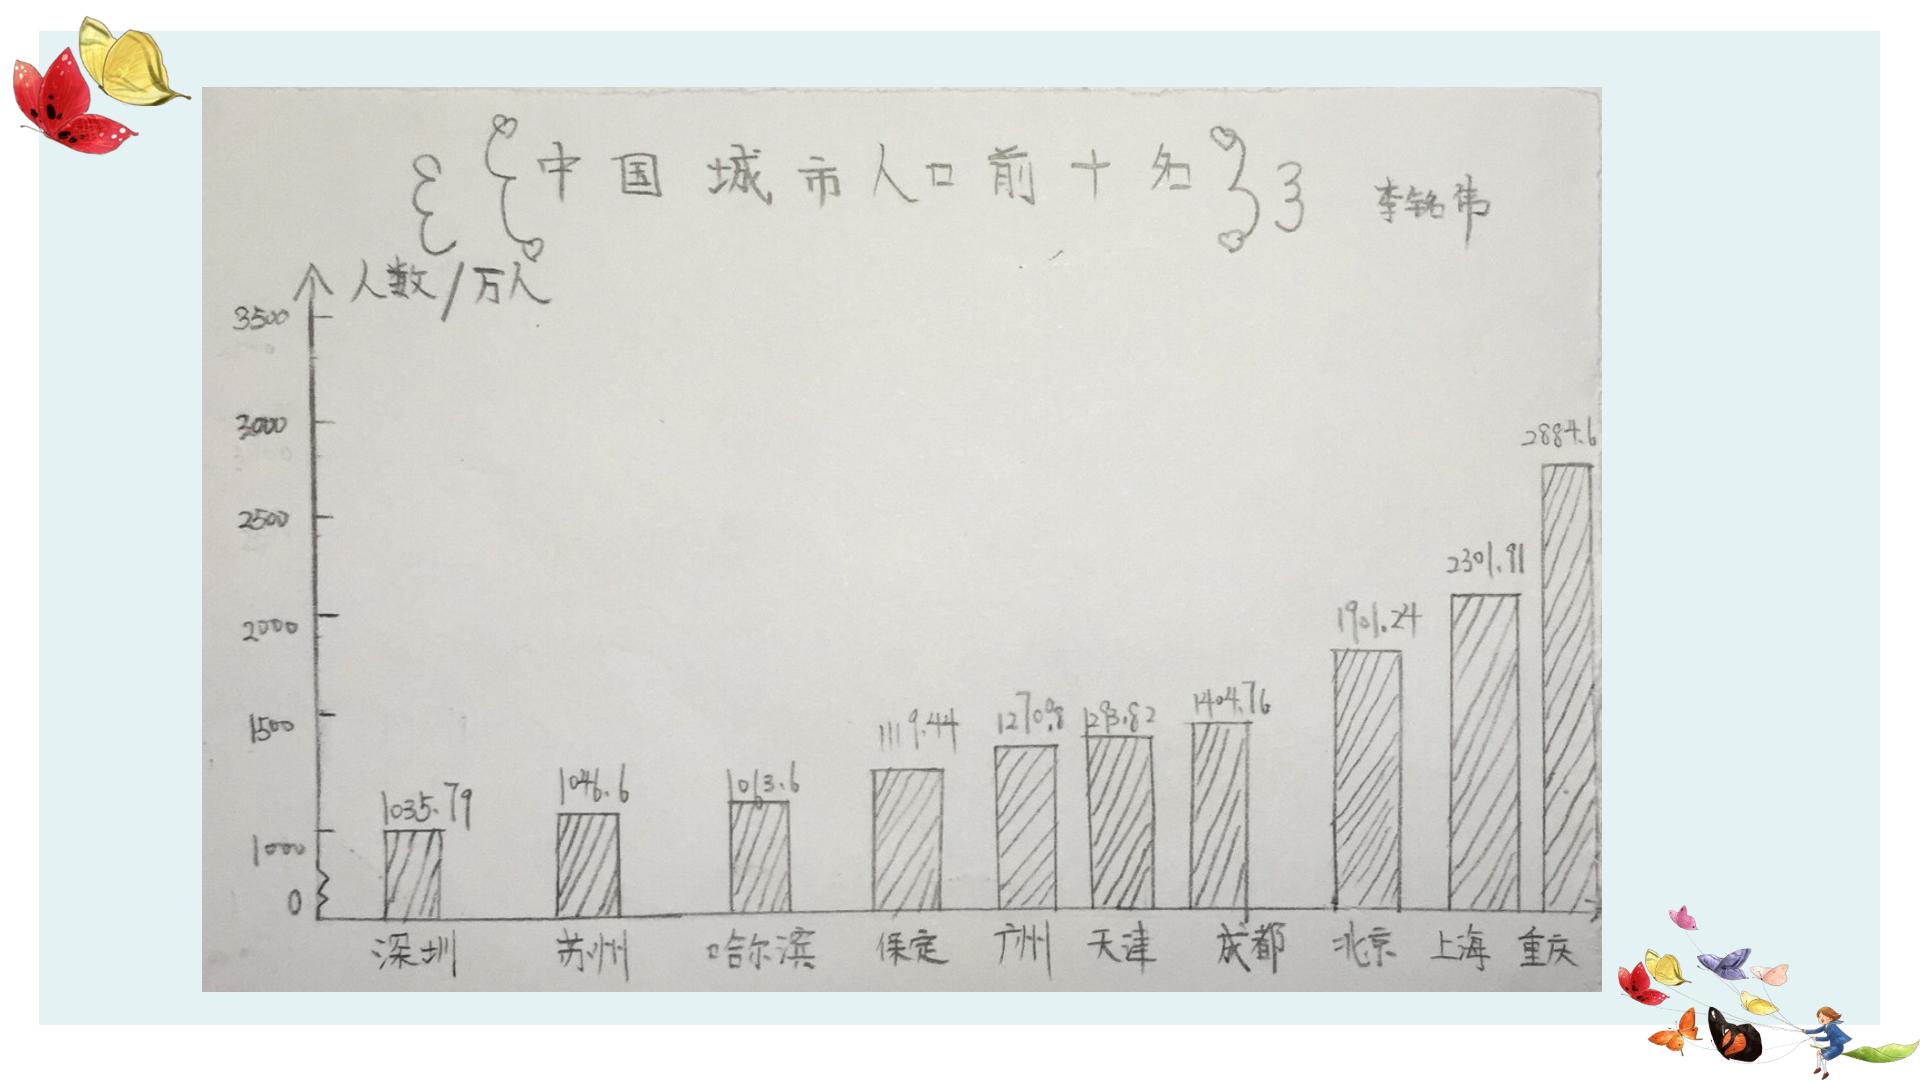 中国城市人口前十名
李铭伟
人数/万人
3500
3000
2500
2000
1500
1000
0
1035.79
1046.6
1063.6
1119.44
1270.08
1293.82
1404.76
1901.24
2301.91
2884.6
深圳 苏州 哈尔滨 保定 广州 天津 成都 北京 上海 重庆